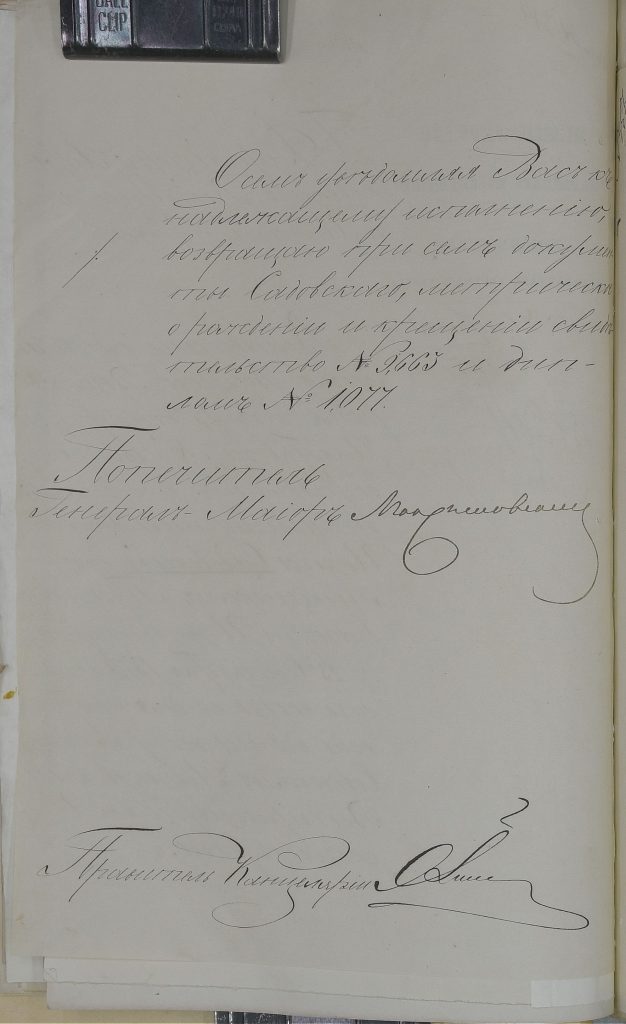 О семъ уведомляя Васъ къ
надлежащему исполненію,
возвращаю при семъ докумен
ты Садовскаго, метрическое
о рожденіи и крещеніи свидѣ
тельство № 9,663 и дип-
ломъ № 1,077.
Попечитель
Генералъ-Маіоръ
Правитель Канцеляріи